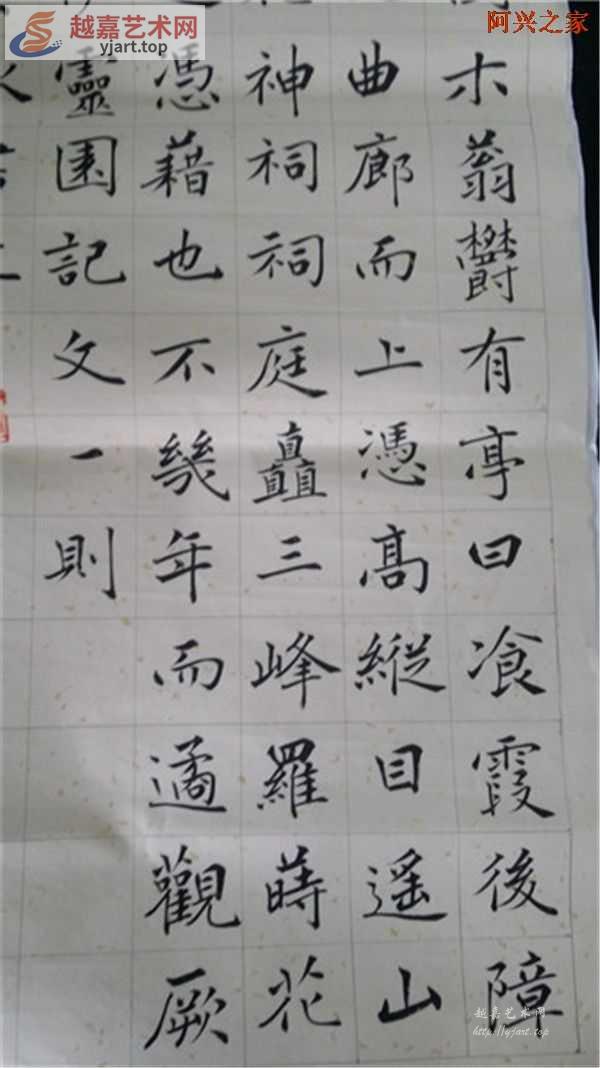 越嘉艺术网
yjart.top
阿兴之家
木蓊欝有亭曰飡霞後障
曲廊而上憑高縱目遥山
神祠祠庭矗三峰羅蒔花
憑藉也不幾年而遹觀厥
靈園記文一則
越嘉艺术网
http://yjart.top